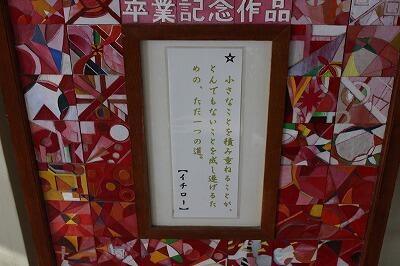 卒業記念作品
☆
小さなことを積み重ねることが、
とんでもないことを成し遂げるた
めの、ただ一つの道。
【イチロー】